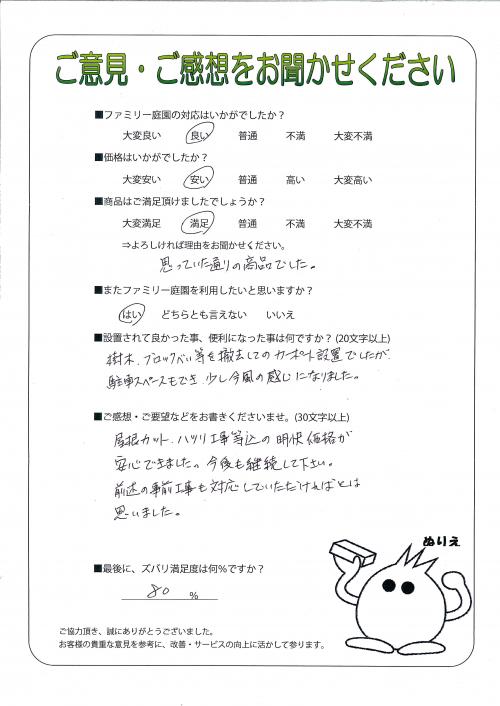 ご意見・ご感想をお聞かせください
■ファミリー庭園の対応はいかがでしたか？
大変良い 良い 普通 不満 大変不満
■価格はいかがでしたか？
大変安い 安い 普通 高い 大変高い
■商品はご満足頂けましたでしょうか？
大変満足 満足 普通 不満 大変不満
⇒よろしければ理由をお聞かせください。
思っていた通りの商品でした。
■またファミリー庭園を利用したいと思いますか？
はい どちらとも言えない いいえ
■設置されて良かった事、便利になった事は何ですか？(20文字以上)
樹木、ブロックべい等を撤去してのカーポート設置でしたが
駐車スペースもでき、少し今風の感じになりました。
■ご感想・ご要望などをお書きくださいませ。(30文字以上)
屋根カット、ハツリ工事等込の明快価格が
安心できました。今後も継続して下さい。
前述の事前工事も対応していただければとは
思いました。
ぬりえ
■最後に、ズバリ満足度は何%ですか？
80 %
ご協力頂き、誠にありがとうございました。
お客様の貴重な意見を参考に、改善・サービスの向上に活かして参ります。